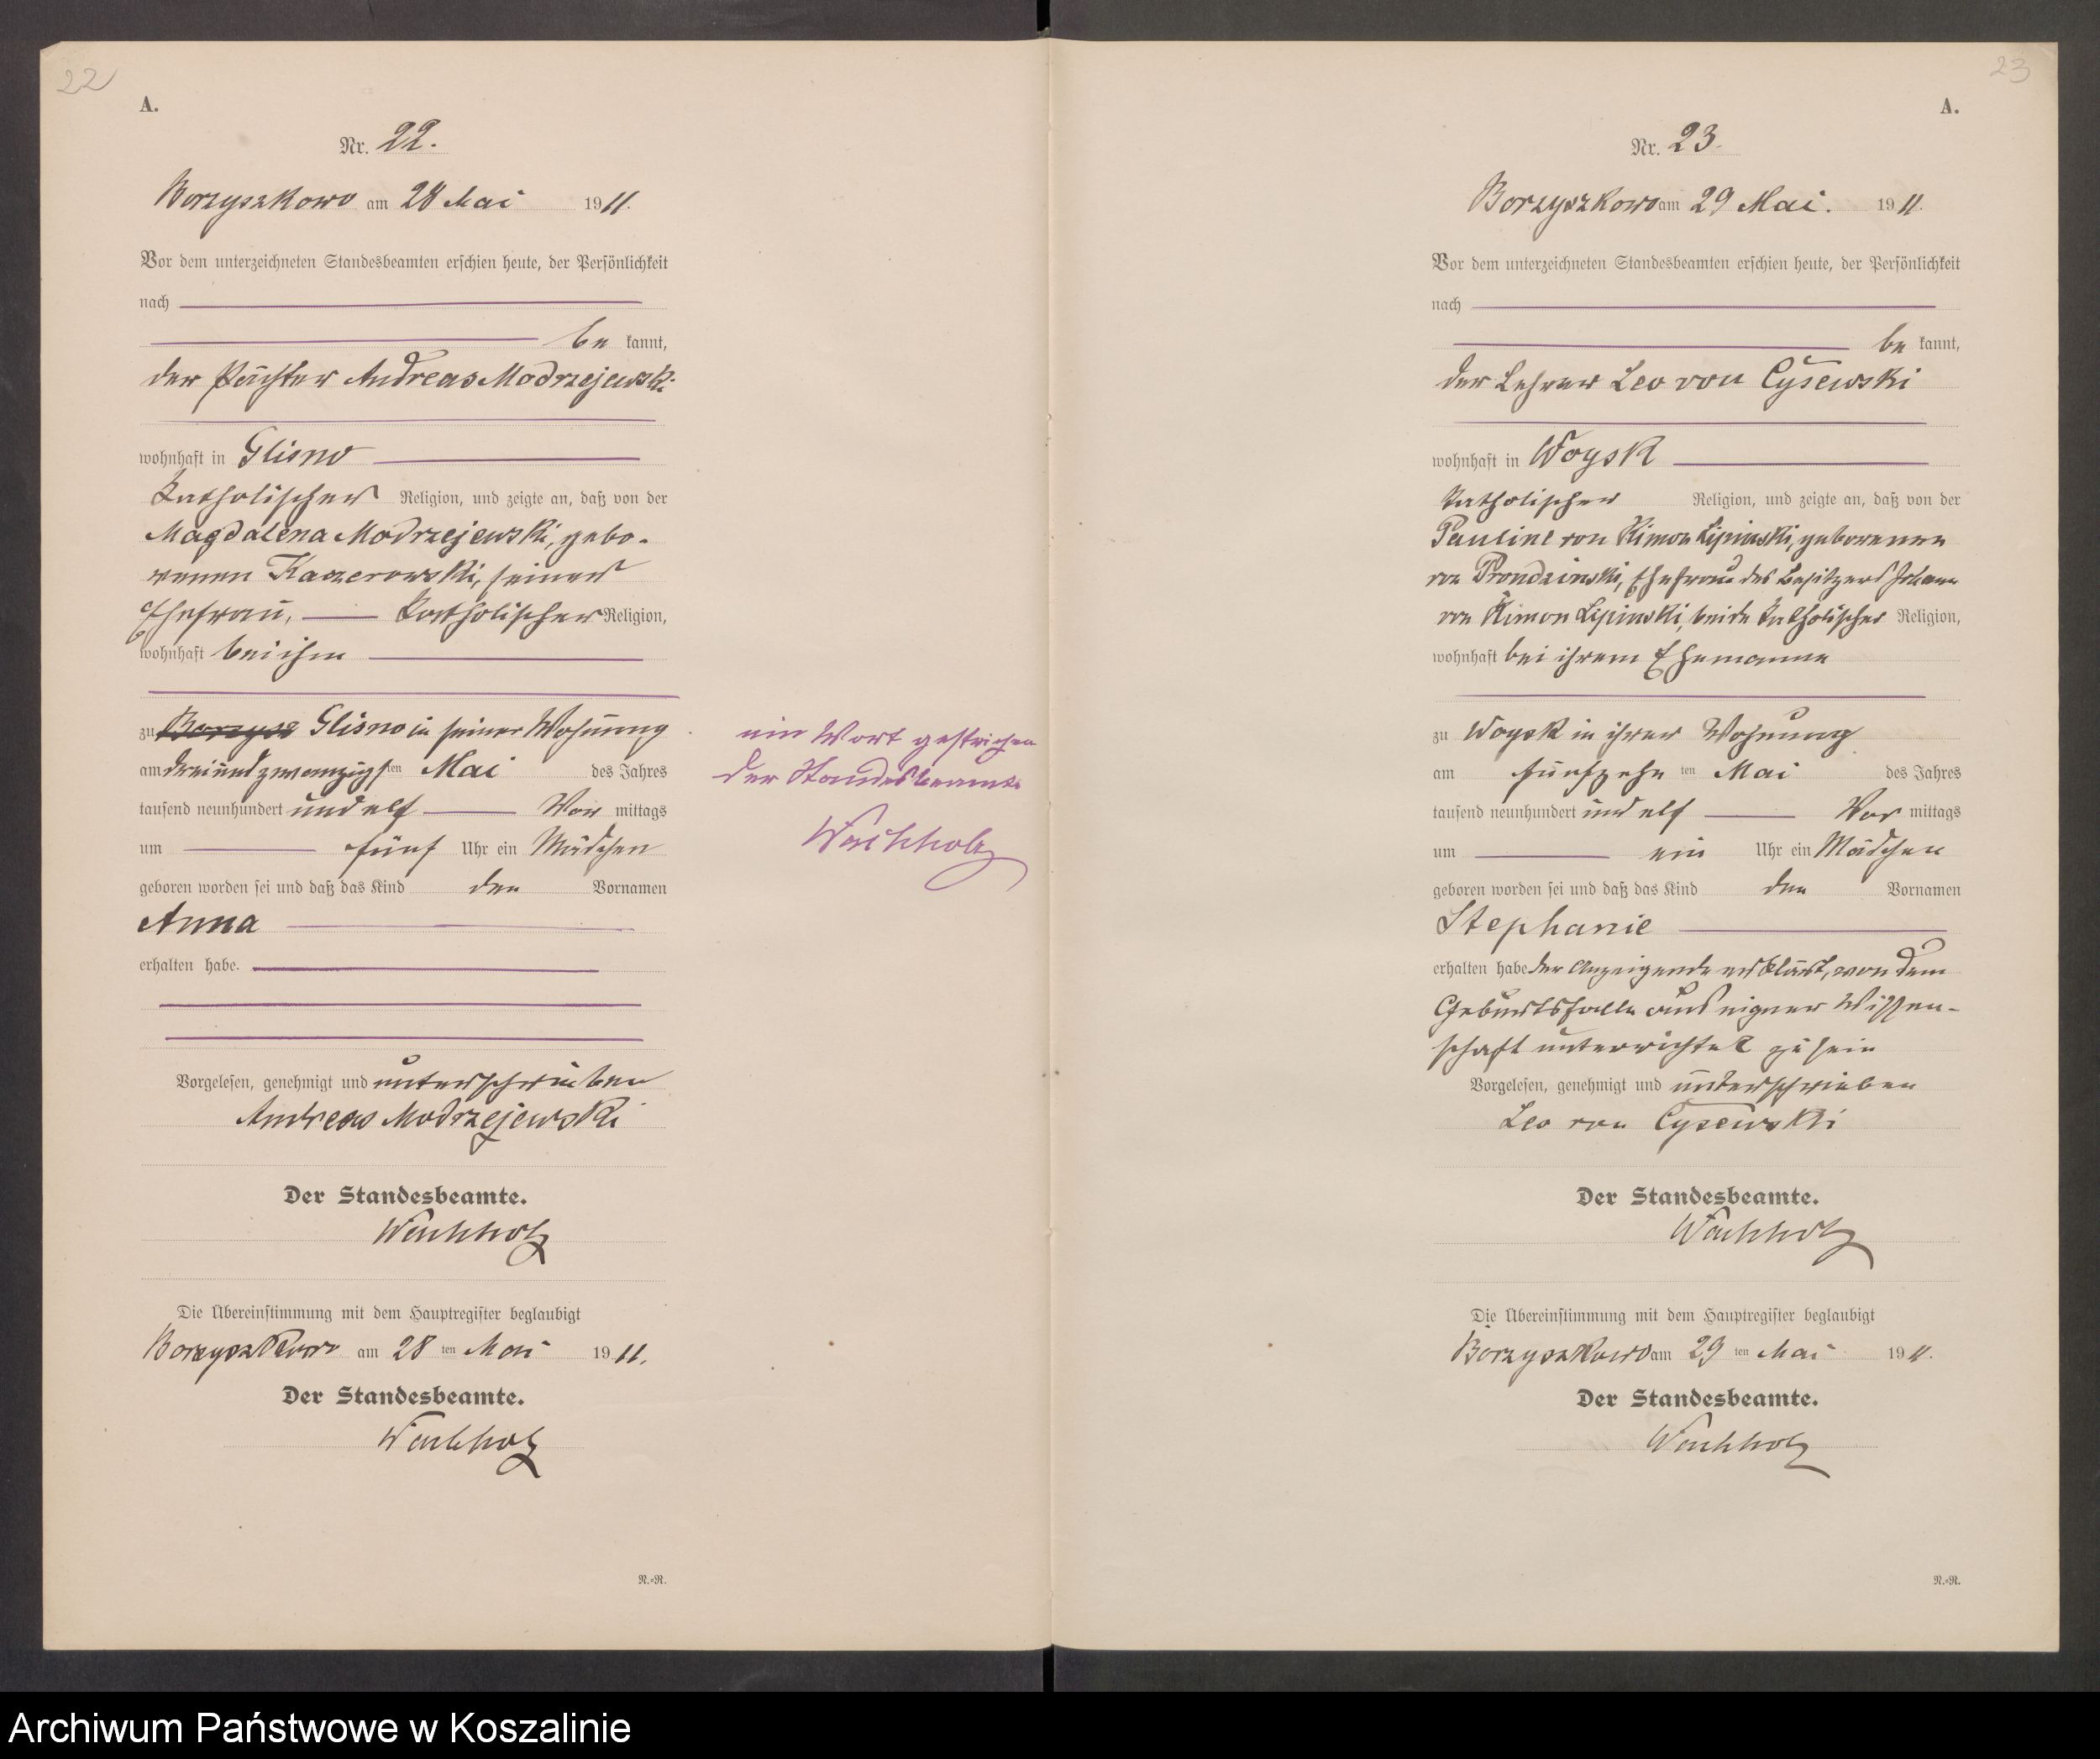 22
A.
Nr. 22.
Borzyszkowo am 28 Mai 1911.
Vor dem unterzeichneten Standesbeamten erschien heute, der Persönlichkeit
nach
be kannt,
der Pächter Andreas Modrzejewski
wohnhaft in Glisno
katholischer Religion, und zeigte an, daß von der
Magdalena Modrzejewski, gebo-
renen Kaszerowski, seiner
Ehefrau, katholischer Religion,
wohnhaft bei ihm
zu Borzysz Glisno in seiner Wohnung
am dreiundzwanzigsten Mai des Jahres
tausend neunhundert und elf Vor mittags
um fünf Uhr ein Mädchen
geboren worden sei und daß das Kind den Vornamen
Anna
erhalten habe.
Vorgelesen, genehmigt und unterschrieben
Andreas Modrzejewski
Der Standesbeamte.
Wachholz
Die Übereinstimmung mit dem Hauptregister beglaubigt
Borzyszkowo am 28 ten Mai 1911.
Der Standesbeamte.
Wachholz
N.=R.
ein Wort gestrichen
Der Standesbeamte
Wachholz
23
A.
Nr. 23.
Borzyszkowo am 29 Mai. 1911.
Vor dem unterzeichneten Standesbeamten erschien heute, der Persönlichkeit
nach
be kannt,
der Lehrer Leo von Cysewski
wohnhaft in Woysk
katholischer Religion, und zeigte an, daß von der
Pauline von Kimon Lipinski, geborenen
von Prondzinski, Ehefrau des Besitzers Johann
von Kimon Lipinski, beide katholischer Religion,
wohnhaft bei ihrem Ehemanne
zu Woysk in ihrer Wohnung
am fünfzehn ten Mai des Jahres
tausend neunhundert und elf Vor mittags
um ein Uhr ein Mädchen
geboren worden sei und daß das Kind den Vornamen
Stephanie
erhalten habe der Anzeigende erklärt, von dem
Geburtsfalle aus eigner Wissen-
schaft unterrichtet zu sein
Vorgelesen, genehmigt und unterschrieben
Leo von Cysewski
Der Standesbeamte.
Wachholz
Die Übereinstimmung mit dem Hauptregister beglaubigt
Borzyszkowo am 29 ten Mai 1911.
Der Standesbeamte.
Wachholz
N.=R.
Archiwum Państwowe w Koszalinie